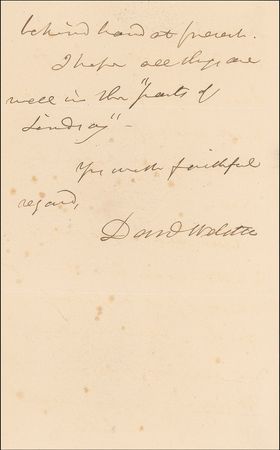 behind hand at present.
I hope all things are
well in the "parts of
Lindsay" -
Yrs with faithful
regard,
Danl Webster